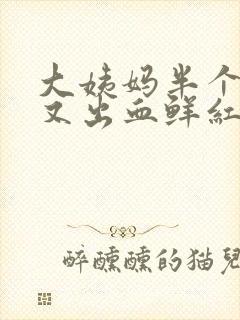 大姨妈半个
又出血鲜紅
醉醺醺的猫兒